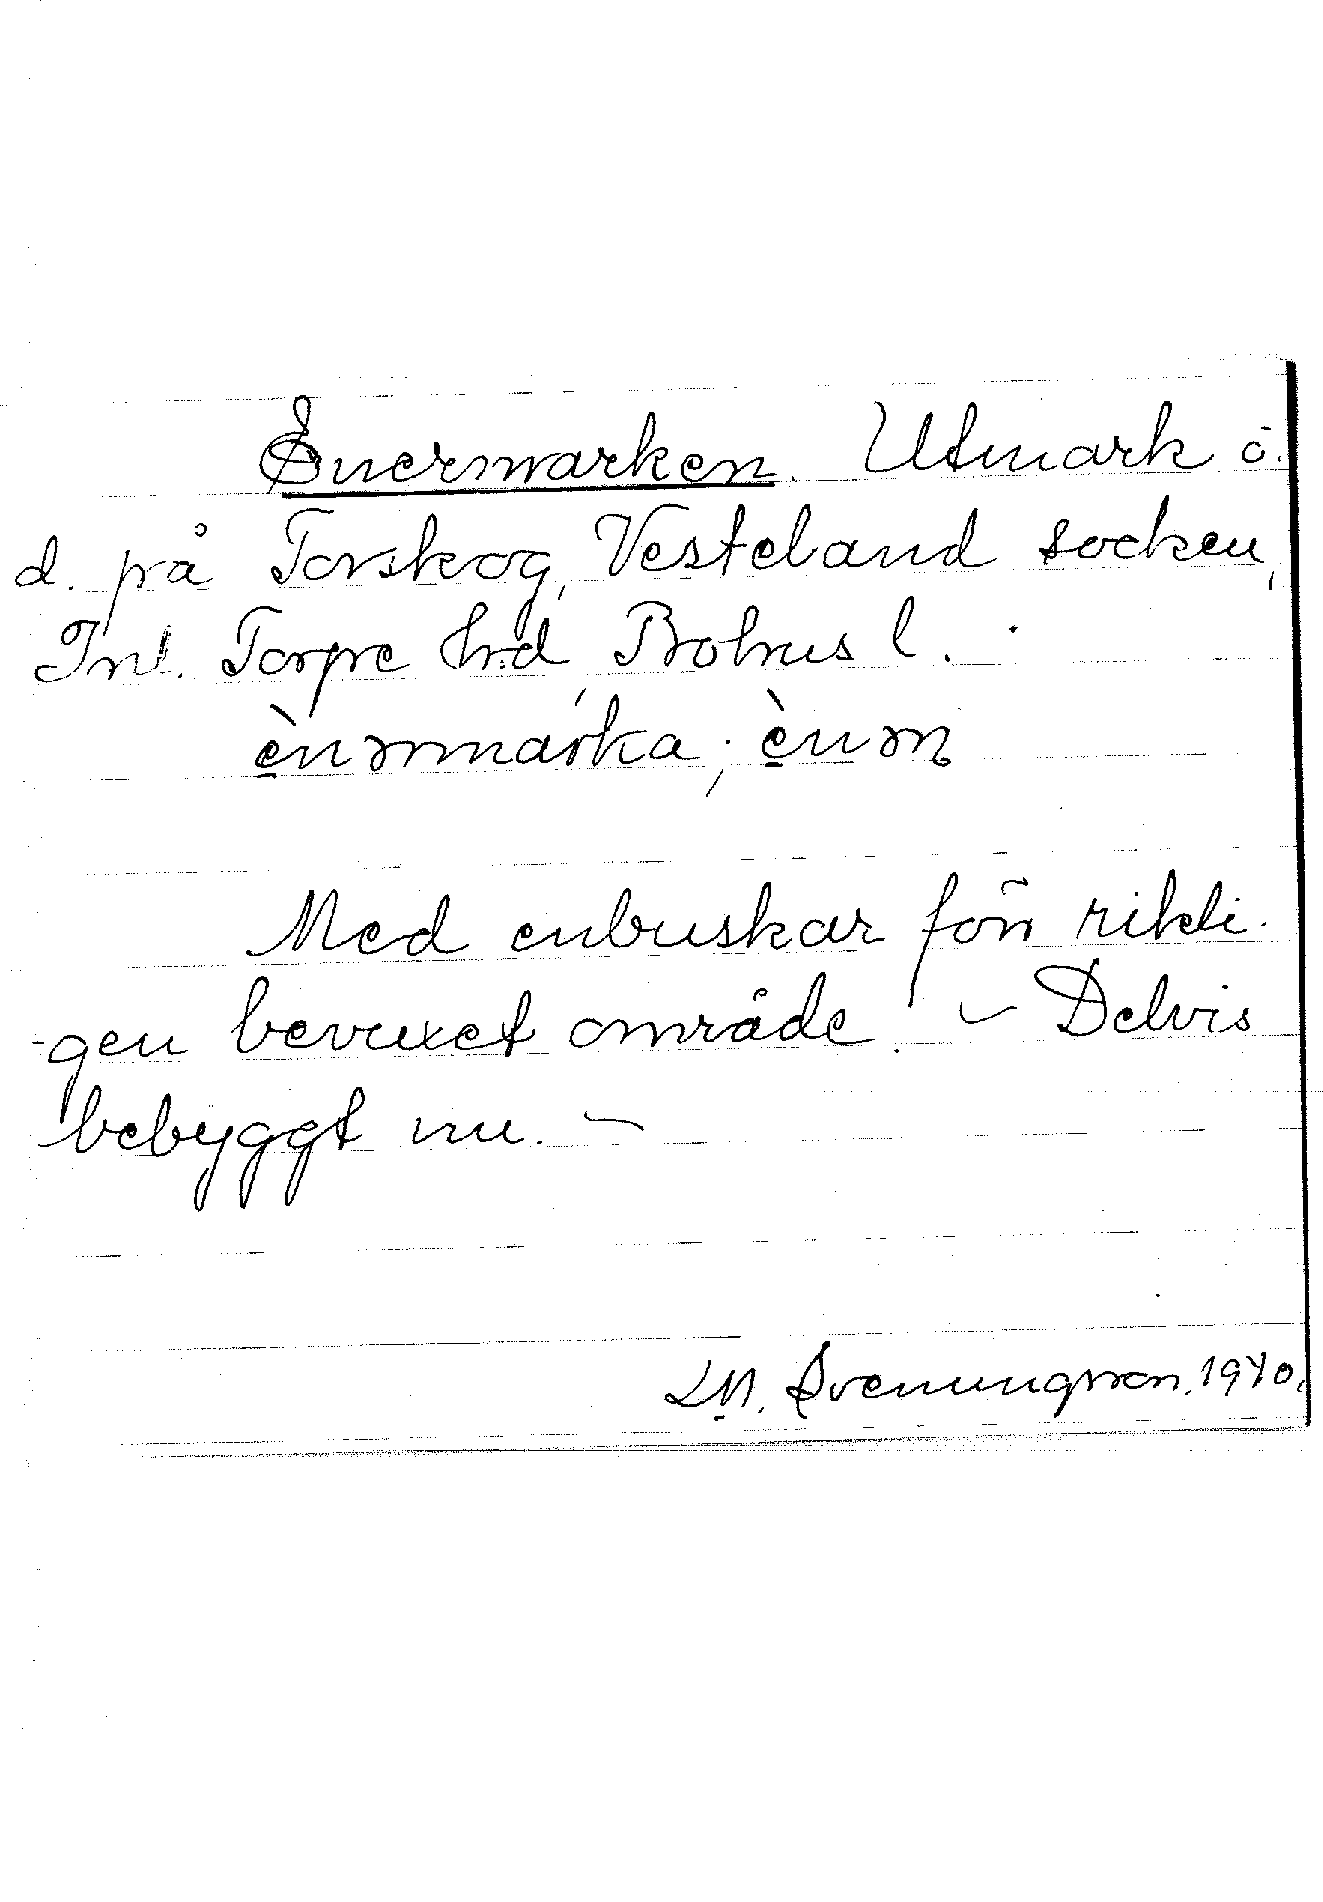 Enermarken. Utmark ö.
d. på Torskog, Vesteland socken,
Inl. Torpe hrd, Bohus l.
Med enbuskar förr rikli-
-gen bevuxet område. - Delvis
bebyggt nu. -
LM. Svenungsson. 1940.